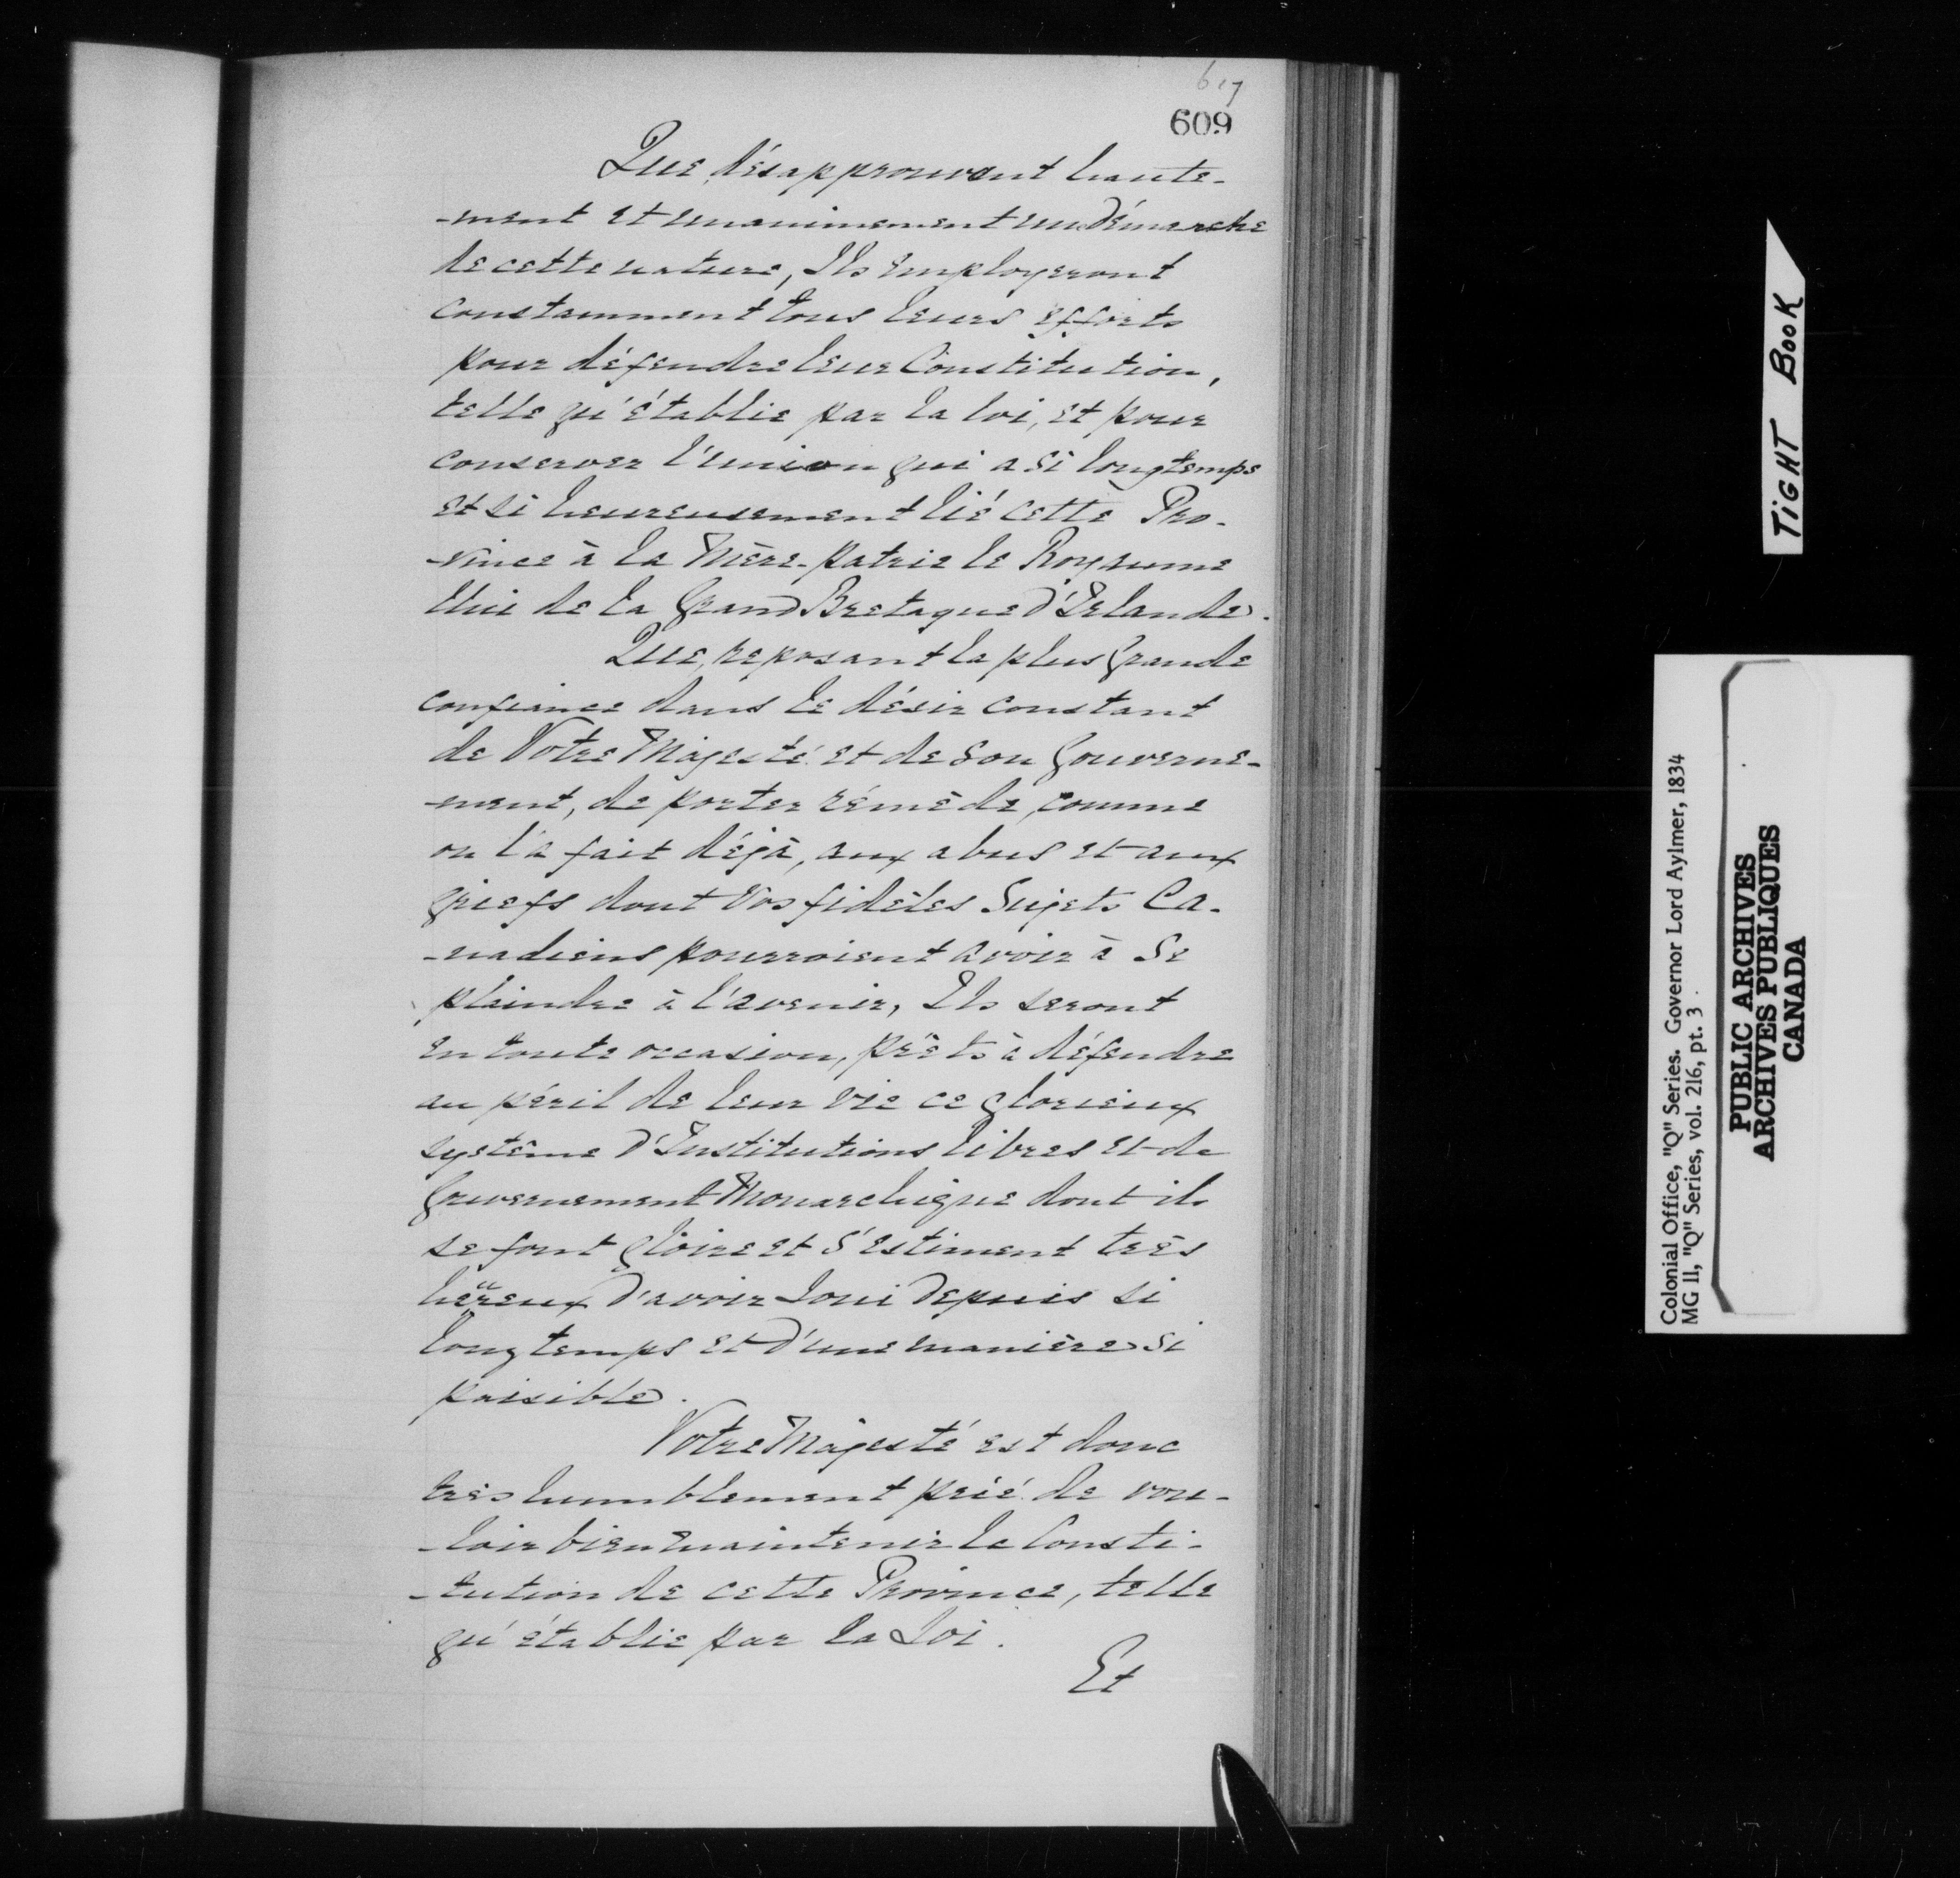 617
609
Que, désapprouvant haute-
-ment et unanimement une Démarche
de cette nature, Ils employeront
constamment tous leurs efforts
pour défendre leur Constitution,
telle qu'établie par la loi, et pour
conserver l'union qui a si longtemps
et si heureusement lié cette Pro-
-vince à la Mère-patrie le Royaume
Uni de la Grand Bretagne d'Irlande.
Que, reposant la plus Grande
confiance dans le désir constant
de Votre Majesté et de Son Gouverne-
-ment, de porter rémède, comme
on l'a fait déjà, aux abus et aux
griefs dont Vos fidèles Sujets Ca-
-nadiens pourroient avoir à Se
plaindre à l'avenir, Ils seront
en toute occasion, prêts à défendre
au péril de leur vie ce glorieux
système d'Institutions libres et de
Gouvernement Monarchique dont ils
se font gloire et s'estiment très
heureux d'avoir Joui depuis si
longtemps et d'une manière si
paisible.
Votre Majesté est donc
très humblement prié de vou-
-loir bien maintenir la Consti-
-tution de cette Province, telle
qu'établie par la Loi.
Et
TiGHT BOOK
Colonial Office, "Q" Series. Governor Lord Aylmer, 1834
MG 11, "Q" Series, vol. 216, pt. 3
PUBLIC ARCHIVES
ARCHIVES PUBLIQUES
CANADA